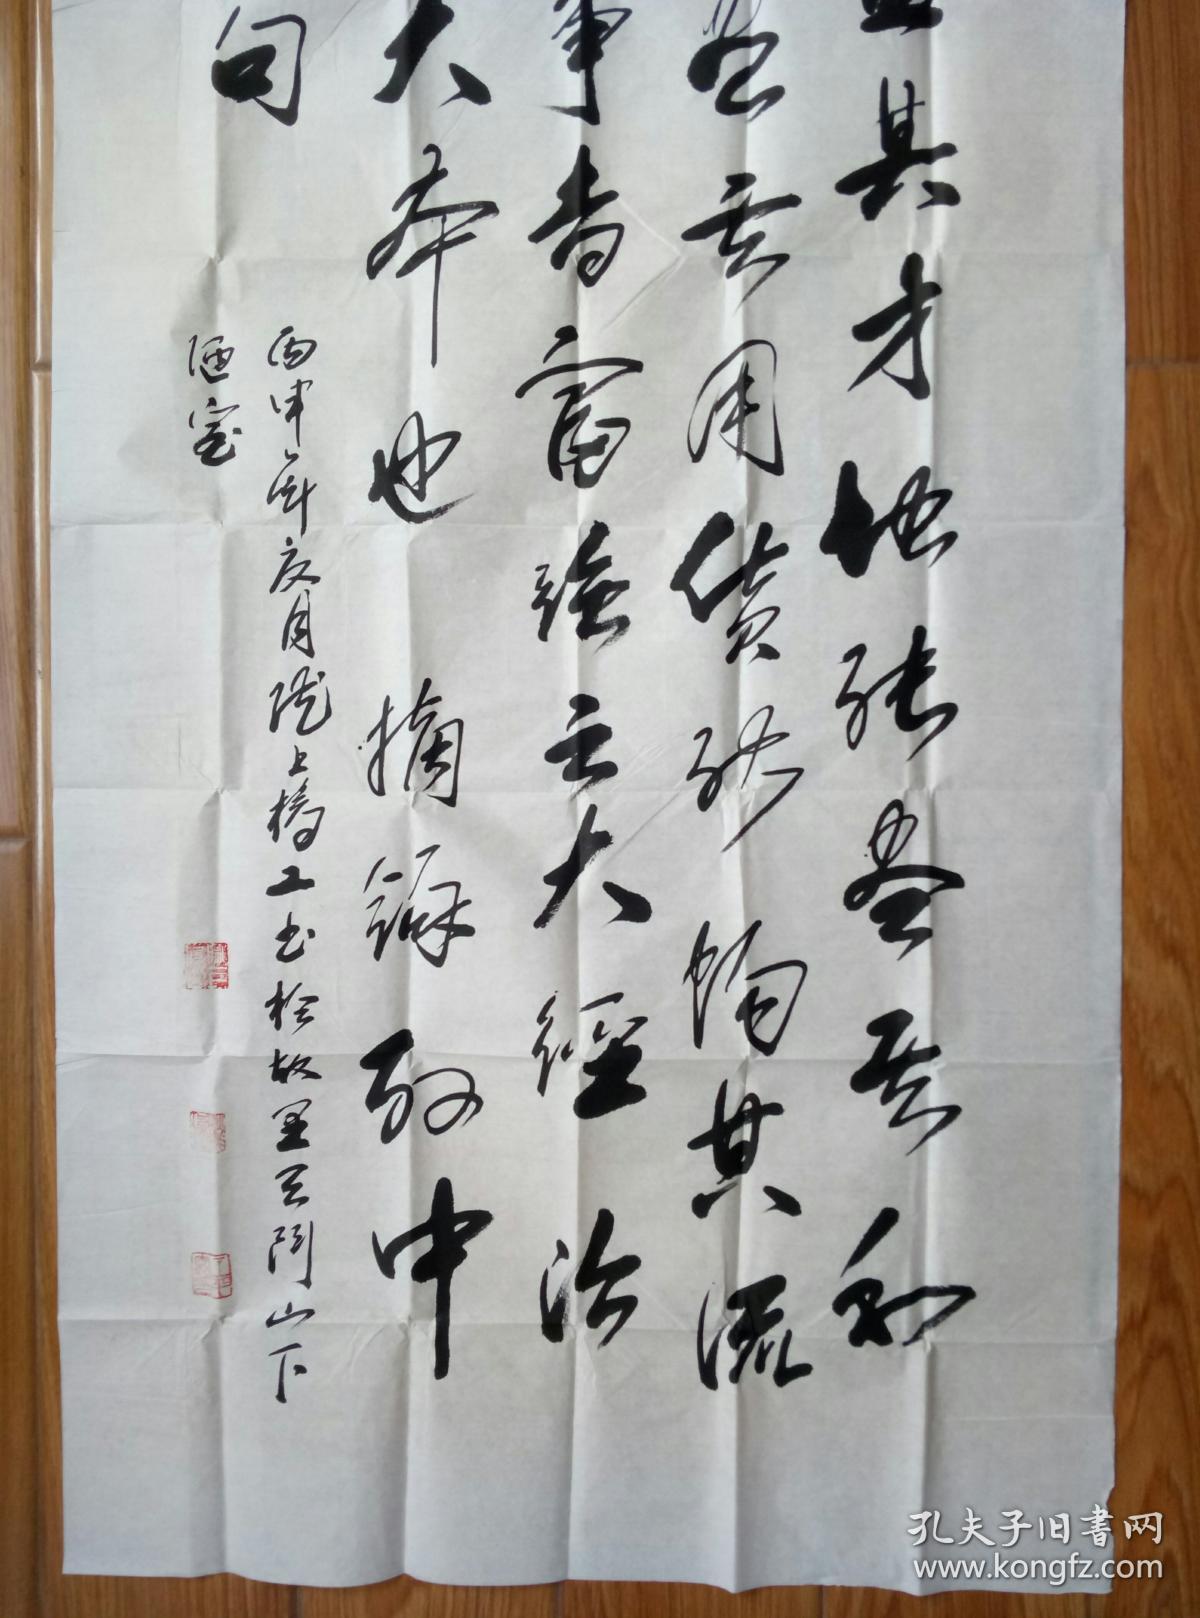 其才地能盡其利
盡其用貨能暢其流
事者富強之大經治
大本也 摘錄孫中
句
丙申年夏月隴上橋工書於故里天門山下
陋室
孔夫子旧書网
www.kongfz.com